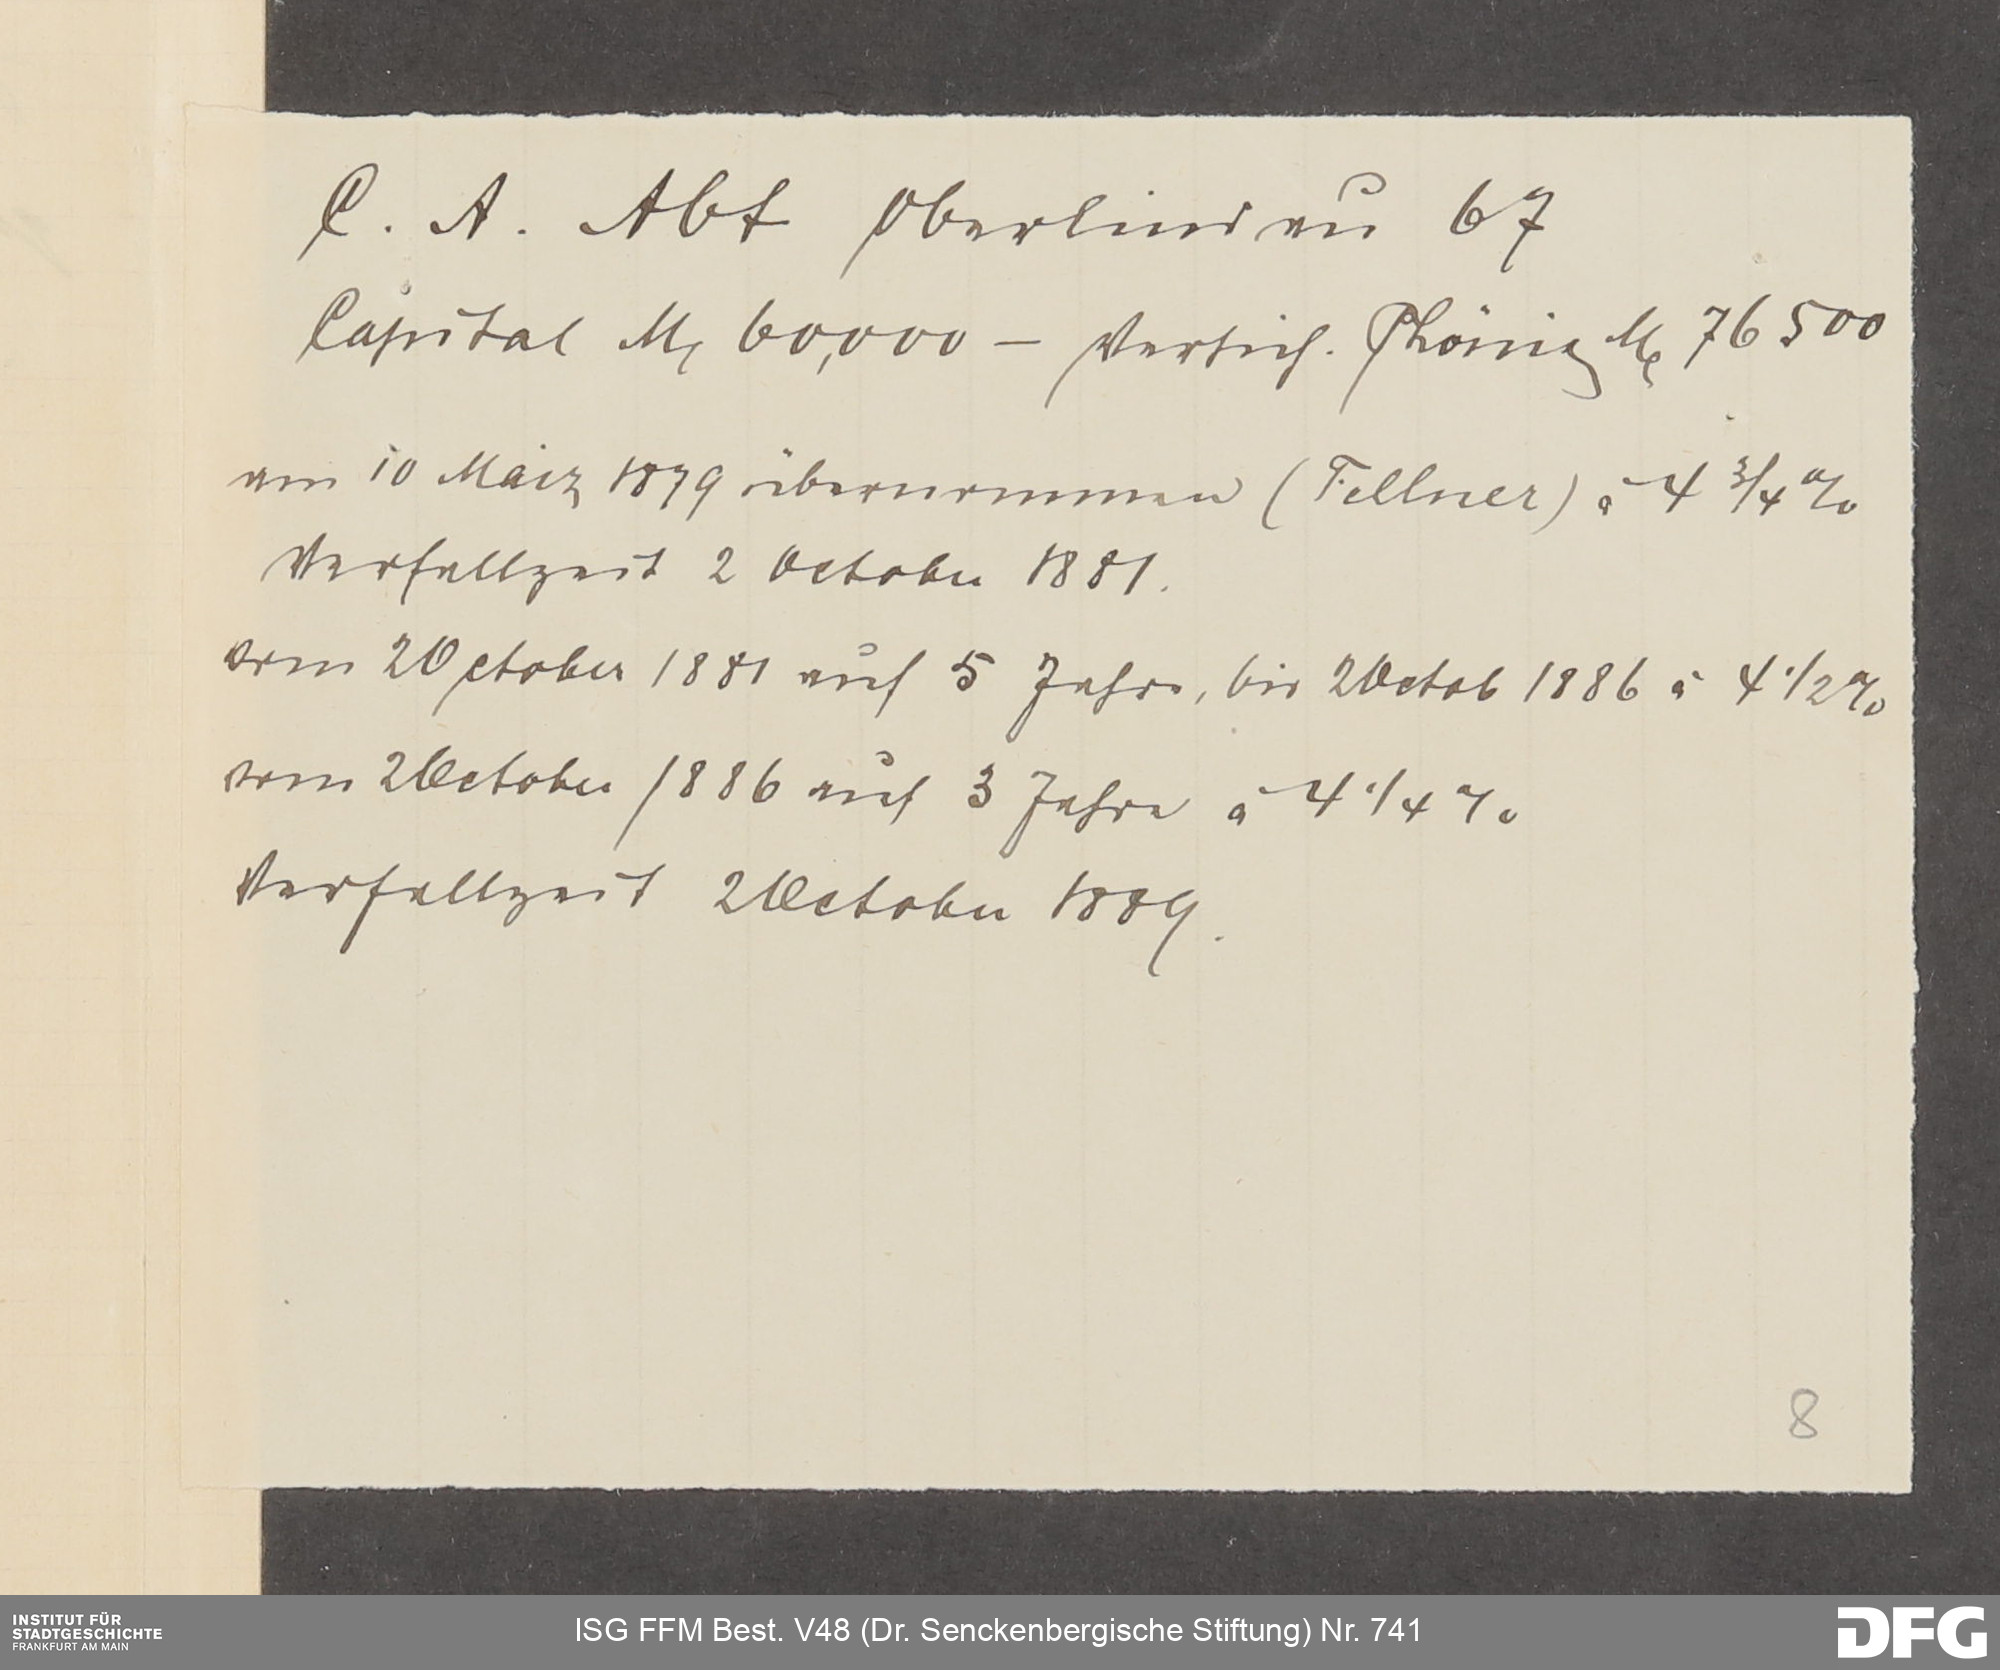 C. A. Abt Oberlindau 67
Capital M. 60,000 — Versich. Phönix M. 76 500
am 10 März 1879 übernommen (Fellner) à 4 3/4 %
Verfallzeit 2 October 1881.
vom 2 October 1881 auf 5 Jahre, bis 2 Octob 1886 à 4 1/2 %
vom 2 October 1886 auf 3 Jahre à 4 1/4 %
Verfallzeit 2 October 1889.
8
INSTITUT FÜR
STADTGESCHICHTE
FRANKFURT AM MAIN
ISG FFM Best. V48 (Dr. Senckenbergische Stiftung) Nr. 741
DFG